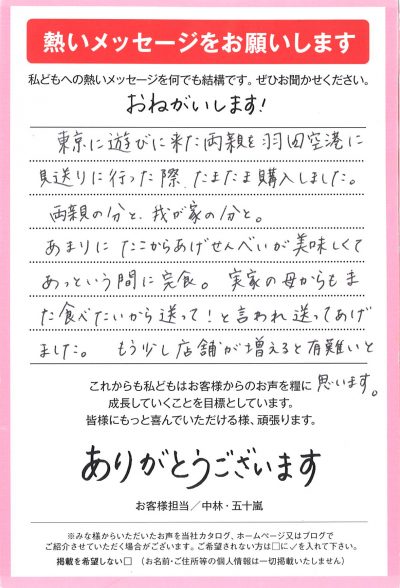 熱いメッセージをお願いします
私どもへの熱いメッセージを何でも結構です。ぜひお聞かせください。
おねがいします!
東京に遊びに来た両親を羽田空港に
見送りに行った際、たまたま購入しました。
両親の分と、我が家の分と。
あまりに たこからあげせんべいが美味しくて
あっという間に完食。 実家の母からもま
た食べたいから送って!と言われ送ってあげ
ました。 もう少し店舗が増えると有難いと
思います。
これからも私どもはお客様からのお声を糧に
成長していくことを目標としています。
皆様にもっと喜んでいただける様、頑張ります。
ありがとうございます
お客様担当／中林・五十嵐
※みな様からいただいたお声を当社カタログ、ホームページ又はブログで
ご紹介させていただく場合がございます。ご希望されない方は□に✓を入れて下さい。
掲載を希望しない□ (お名前・ご住所等の個人情報は一切掲載いたしません)